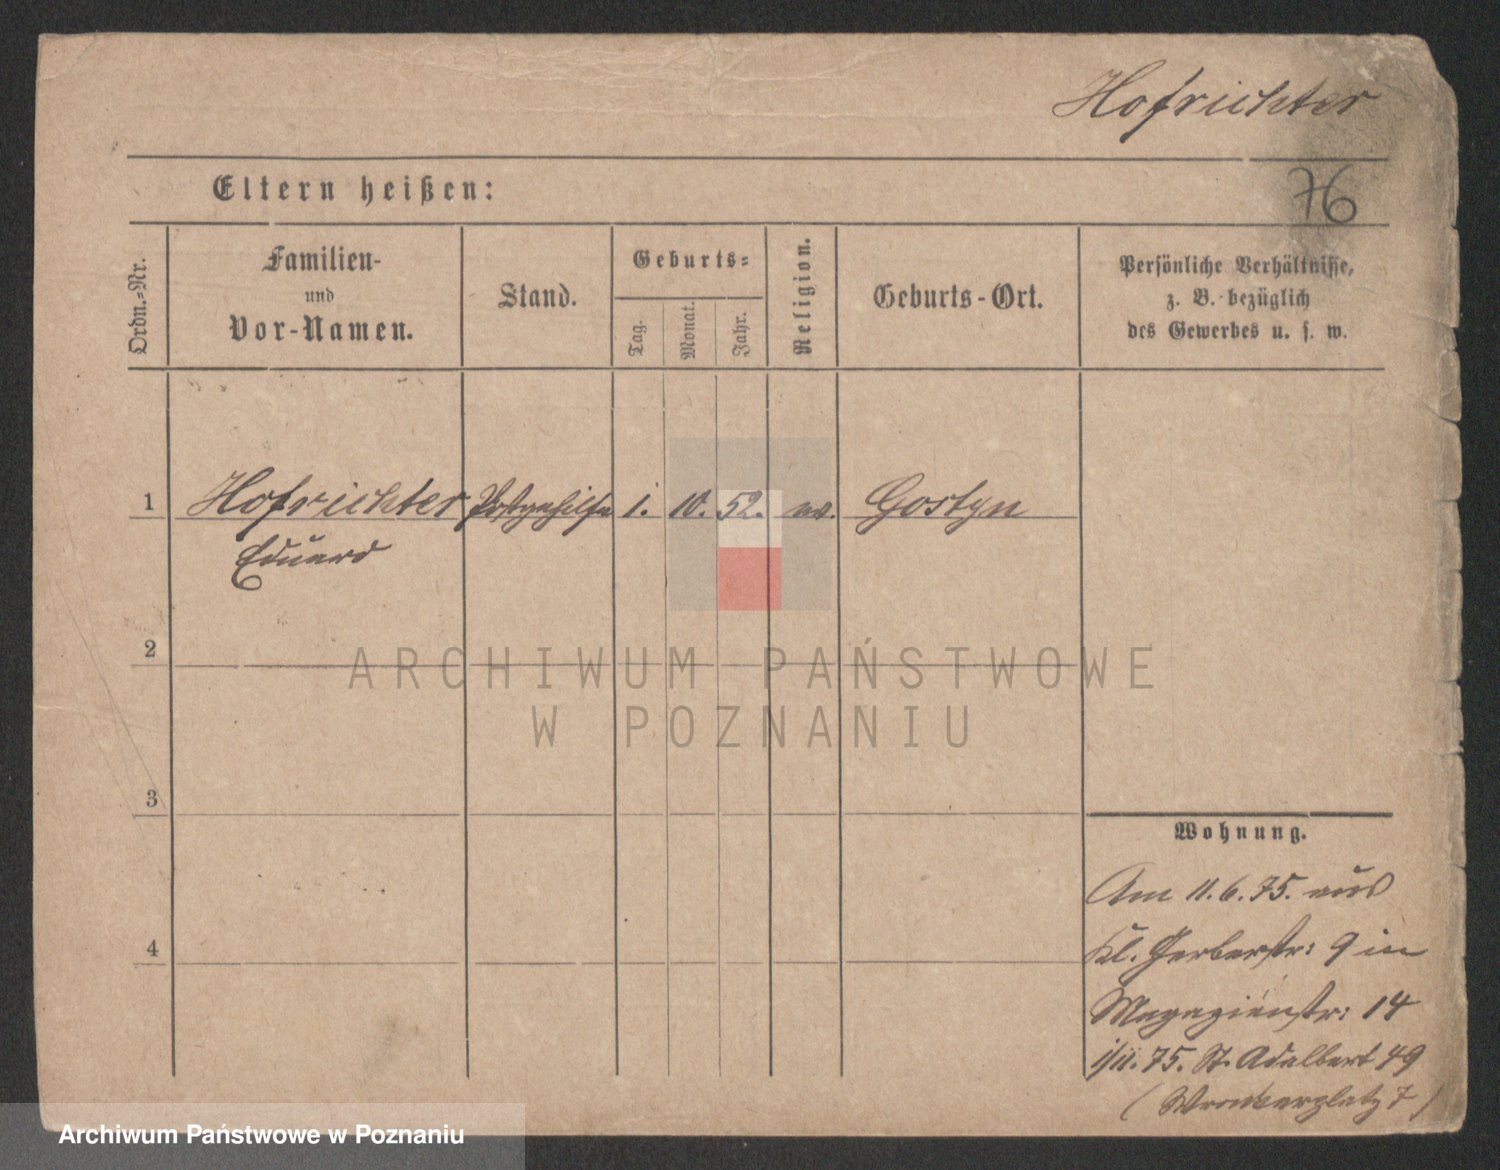 Hofrichter
Eltern heißen:
76
Ordn.-Nr.
Familien-
und
Vor-Namen.
Stand.
Geburts-
Tag.
Monat.
Jahr.
Religion.
Geburts-Ort.
Persönliche Verhältnisse,
z. B. bezüglich
des Gewerbes u. s. w.
1 Hofrichter Postgehilfe 1. 10. 52. ev. Gostyn
Eduard
2
3
4
Wohnung.
Am 11.6.75. aus
Kl. Gerberstr: 9 in
Magazienstr: 14
1/11.75. St. Adalbert 49
(Wronkerplatz 7)
ARCHIWUM PAŃSTWOWE
W POZNANIU
Archiwum Państwowe w Poznaniu